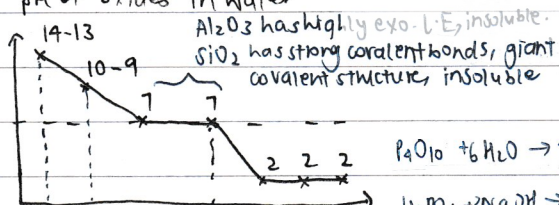 pH of oxides in water
14-13
Al2O3 has highly exo. L.E, insoluble.
SiO2 has strong covalent bonds, giant
covalent structure, insoluble
10-9
7 7
2 2 2
P4O10 + 6H2O →